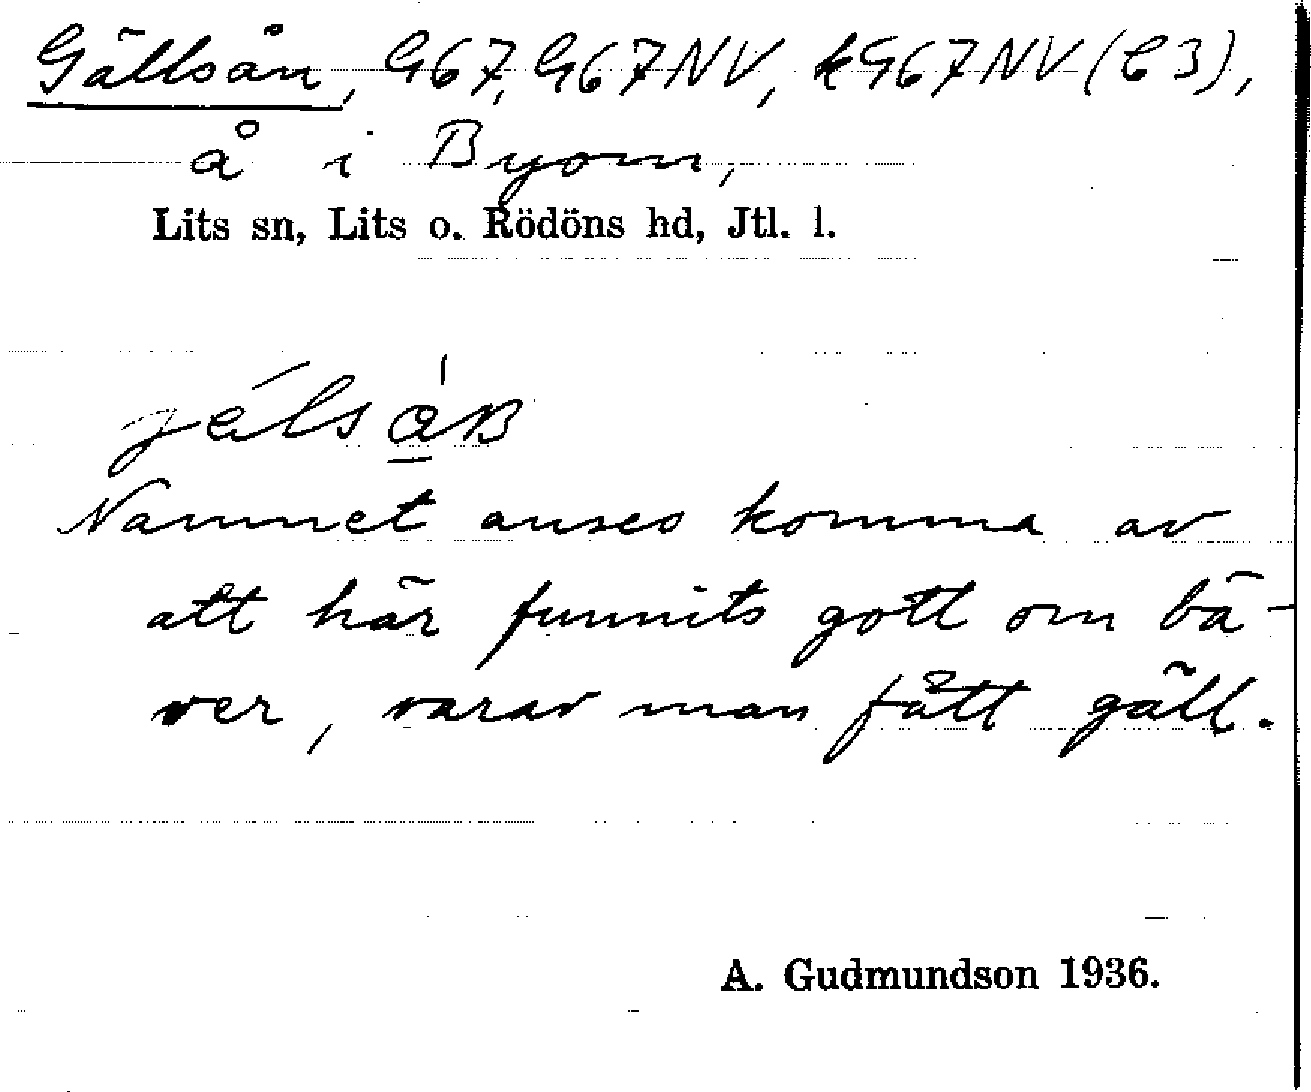 Gällsån, G67, G67NV, kG67NV (C3),
å i Byom,
Lits sn, Lits o. Rödöns hd, Jtl. l.
Namnet anses komma av
att här funnits gott om bä-
ver, varav man fått gäll.
A. Gudmundson 1936.